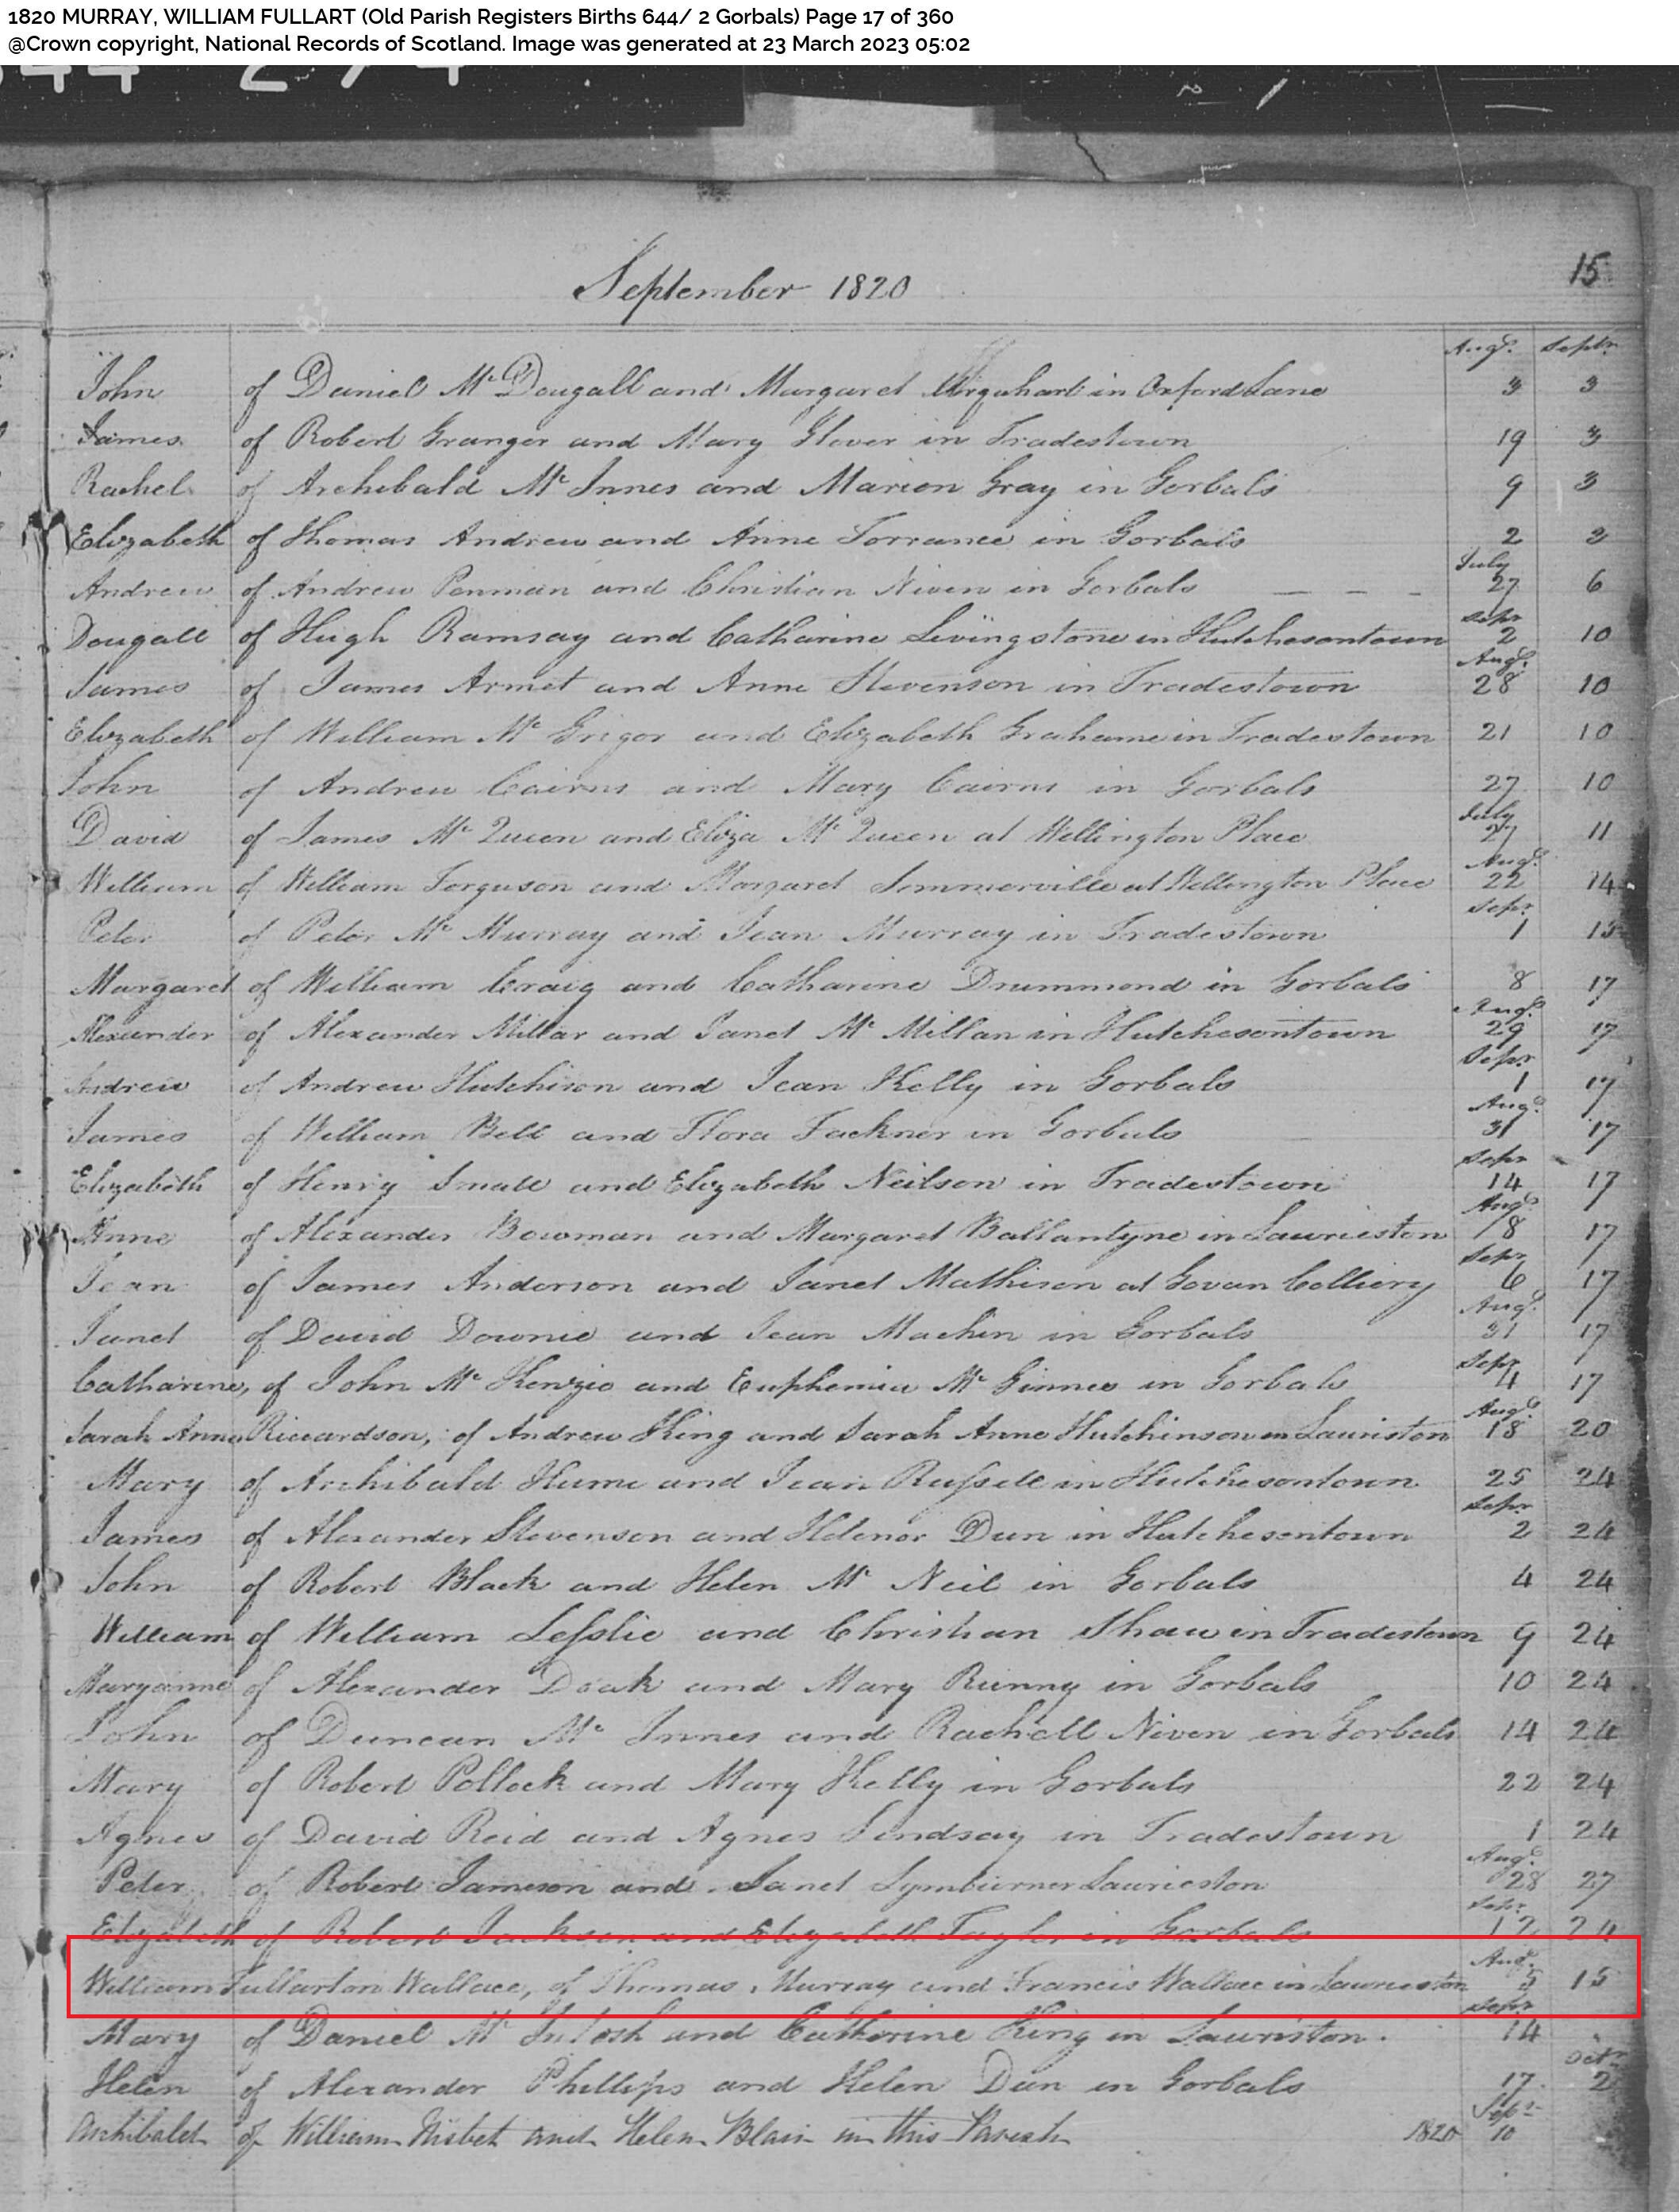 1820 MURRAY, WILLIAM FULLART (Old Parish Registers Births 644/ 2 Gorbals) Page 17 of 360
@Crown copyright, National Records of Scotland. Image was generated at 23 March 2023 05:02
September 1820 15
Augt. Septr.
John of Daniel Mc Dougall and Margaret Urquhart in Oxford Lane 3 3
James of Robert Granger and Mary Glover in Tradestown 19 3
Rachel of Archibald Mc Innes and Marion Gray in Gorbals 9 3
Elizabeth of Thomas Andrew and Anne Torrance in Gorbals 2 3
July
Andrew of Andrew Penman and Christian Niven in Gorbals 27 6
Sepr
Dougall of Hugh Ramsay and Catharine Livingstone in Hutchesontown 2 10
Augt.
James of James Armet and Anne Stevenson in Tradestown 28 10
Elizabeth of William Mc Grigor and Elizabeth Grahame in Tradestown 21 10
John of Andrew Cairns and Mary Cairns in Gorbals 27 10
July
David of James Mc Queen and Eliza Mc Queen at Wellington Place 27 11
Augt.
William of William Ferguson and Margaret Sommerville at Wellington Place 22 14
Sepr.
Peter of Peter Mc Murray and Jean Murray in Tradestown 1 15
Margaret of William Craig and Catharine Drummond in Gorbals 8 17
Augt.
Alexander of Alexander Millar and Janet Mc Millan in Hutchesontown 29 17
Sepr.
Andrew of Andrew Hutchison and Jean Kelly in Gorbals 1 17
Augt.
James of William Bell and Flora Fackner in Gorbals 31 17
Sepr
Elizabeth of Henry Small and Elizabeth Neilson in Tradestown 14 17
Augt.
Anne of Alexander Bowman and Margaret Ballantyne in Laurieston 18 17
Sepr
Jean of James Anderson and Janet Mathison at Govan Colliery 6 17
Augt.
Janet of David Downie and Jean Machin in Gorbals 31 17
Sepr
Catharine, of John Mc Kenzie and Euphemia Mc Ginnes in Gorbals 4 17
Augt.
Sarah Anne Riccardson, of Andrew King and Sarah Anne Hutchinson in Lauriston 18 20
Mary of Archibald Hume and Jean Russell in Hutchesontown 25 24
Sepr
James of Alexander Stevenson and Helenor Dun in Hutchesontown 2 24
John of Robert Black and Helen Mc Neil in Gorbals 4 24
William of William Leslie and Christian Shaw in Tradestown 9 24
Maryanne of Alexander Doak and Mary Runny in Gorbals 10 24
John of Duncan Mc Innes and Rachell Niven in Gorbals 14 24
Mary of Robert Pollock and Mary Kelly in Gorbals 22 24
Agnes of David Reid and Agnes Lindsay in Tradestown 1 24
Augt.
Peter of Robert Jameson and Janet Symburner Laurieston 28 27
Sepr.
Elizabeth of Robert Jackson and Elizabeth Taylor in Gorbals 12 24
Aug.
William Fullarton Wallace, of Thomas Murray and Francis Wallace in Laurieston 5 15
Sepr
Mary of Daniel Mc Intosh and Catherine King in Lauriston. 14
Octr
Helen of Alexander Phillips and Helen Dun in Gorbals 17 2
Sepr
Archibald of William Nisbet and Helen Blair in this Parish 1820 10